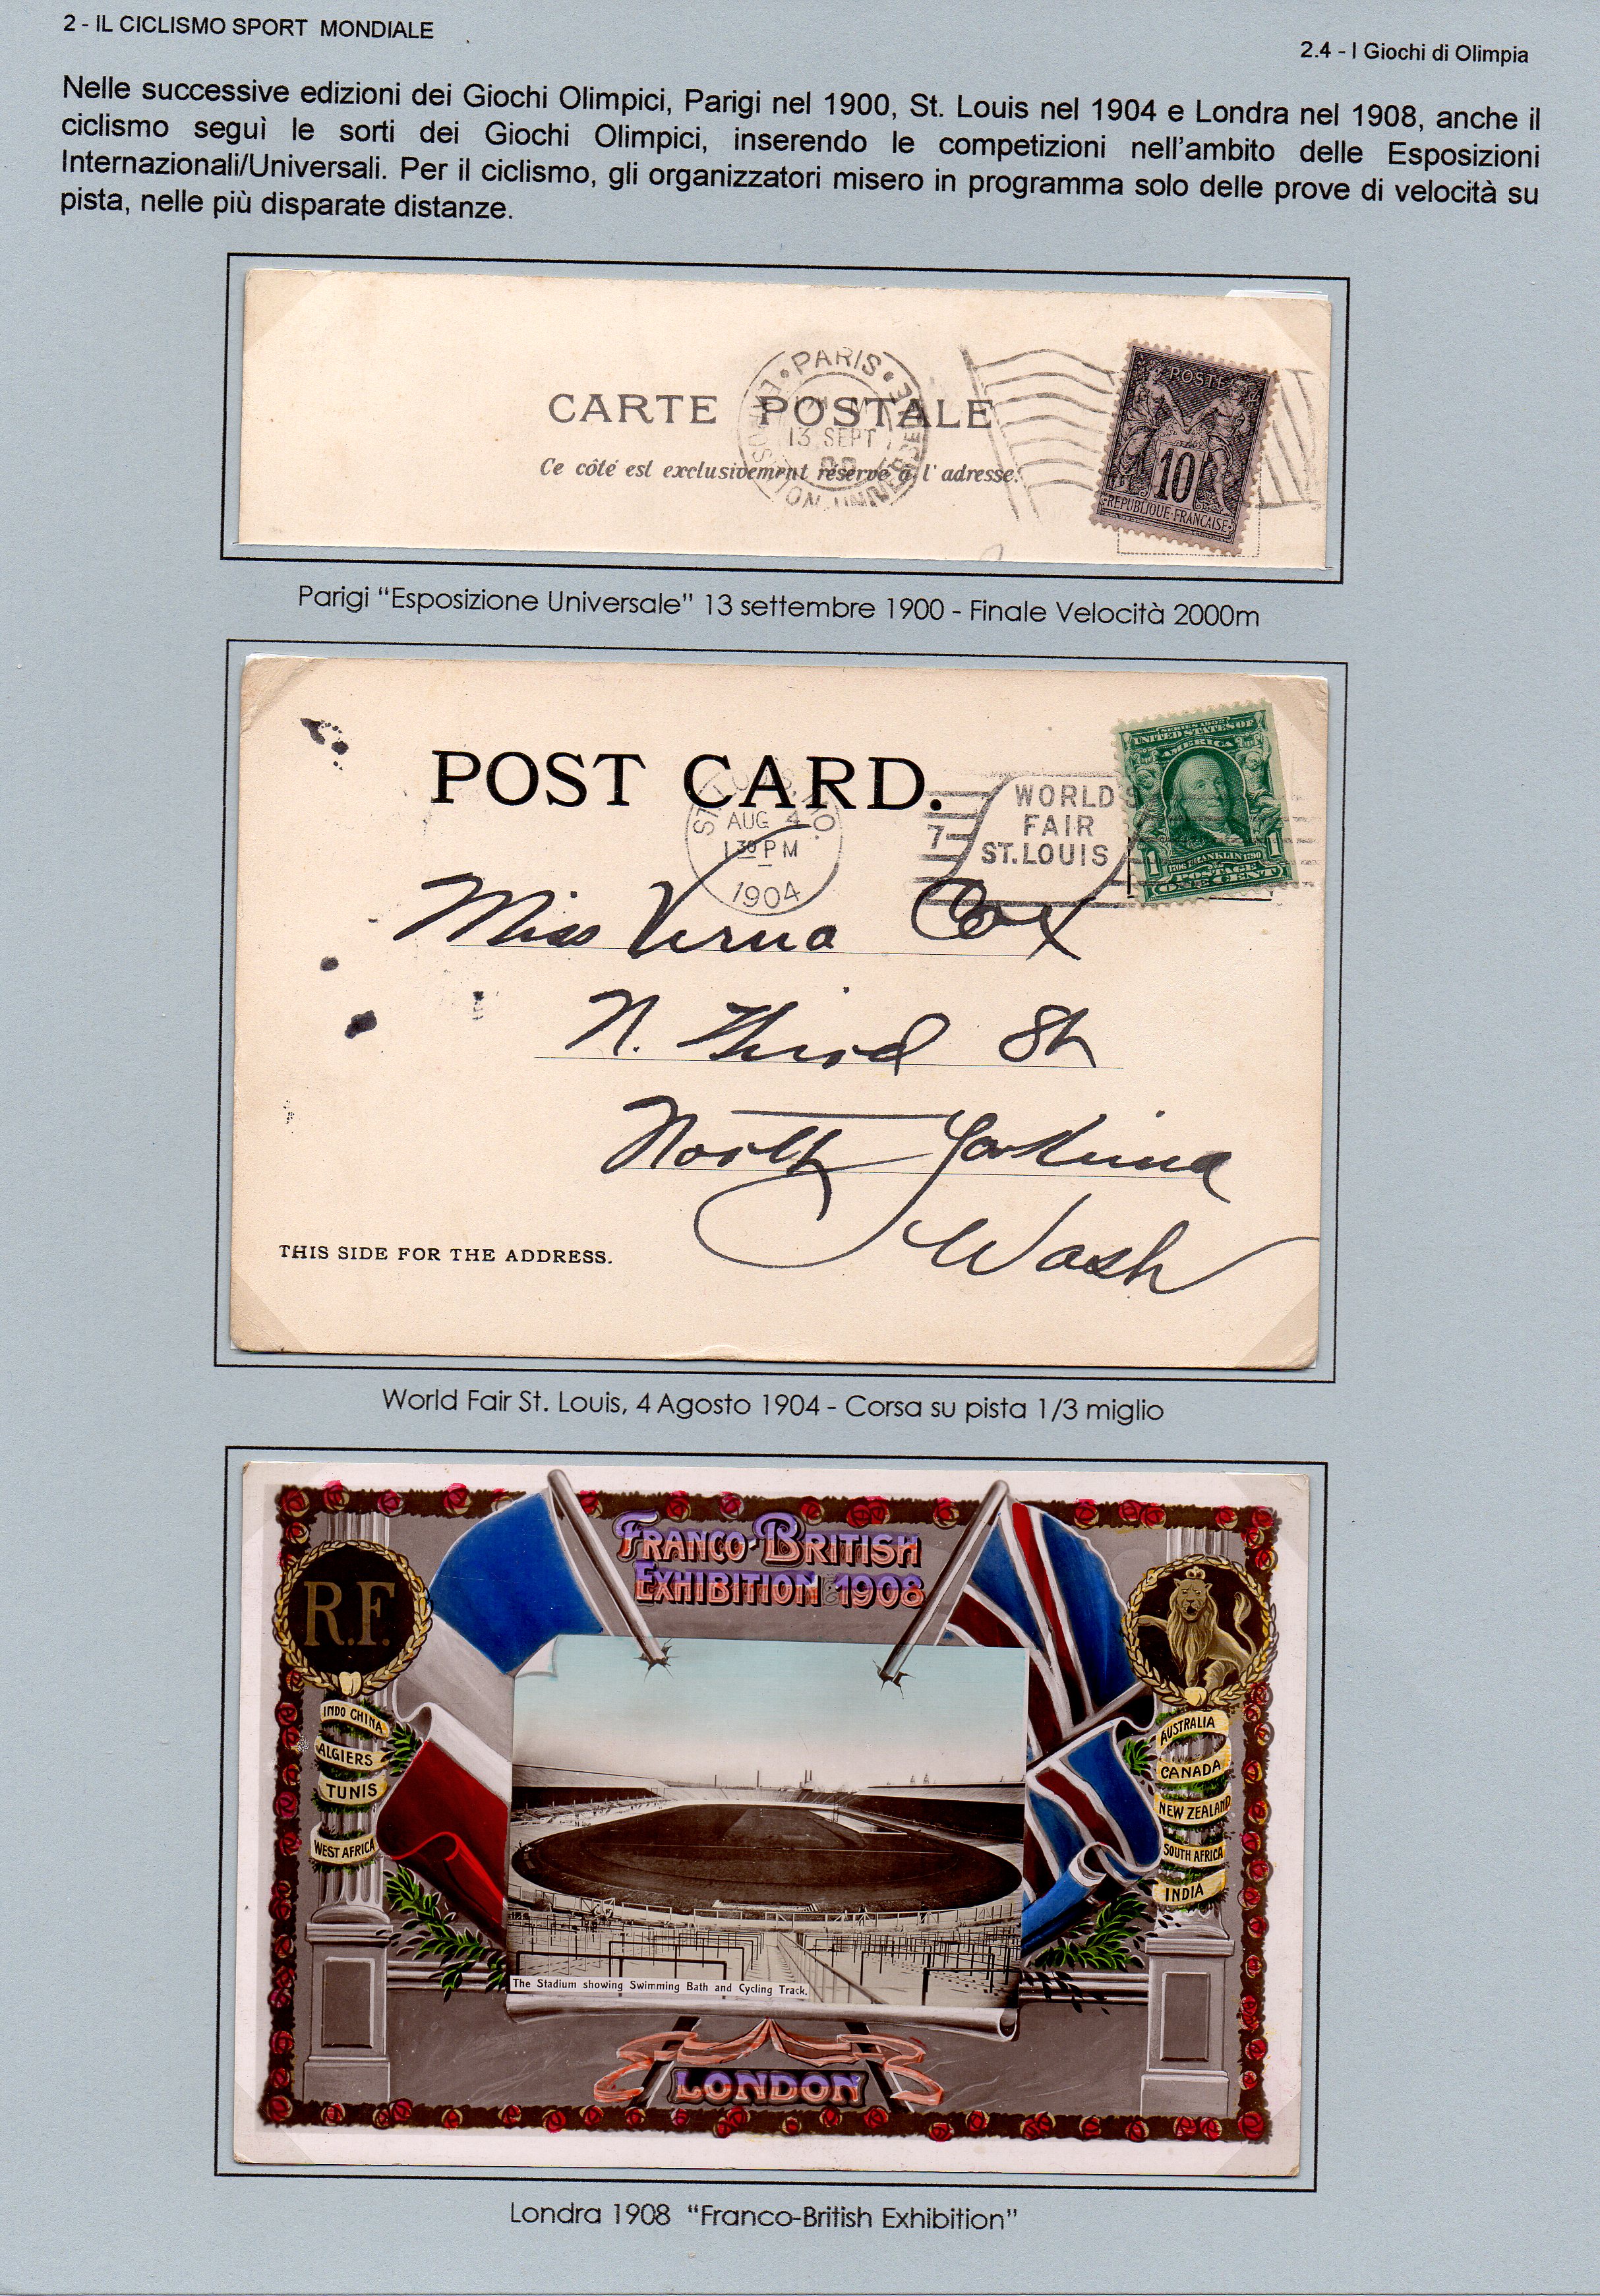 2 - IL CICLISMO SPORT MONDIALE
2.4 - I Giochi di Olimpia
Nelle successive edizioni dei Giochi Olimpici, Parigi nel 1900, St. Louis nel 1904 e Londra nel 1908, anche il
ciclismo seguì le sorti dei Giochi Olimpici, inserendo le competizioni nell'ambito delle Esposizioni
Internazionali/Universali. Per il ciclismo, gli organizzatori misero in programma solo delle prove di velocità su
pista, nelle più disparate distanze.
PARIS
EXPOSITION UNIVERSELLE
13 SEPT
CARTE POSTALE
Ce côté est exclusivement réservé à l'adresse.
POSTE
10
REPUBLIQUE FRANÇAISE
Parigi “Esposizione Universale” 13 settembre 1900 - Finale Velocità 2000m
POST CARD.
ST. LOUIS, MO.
AUG 4
1 30 PM
1904
7
WORLD'S
FAIR
ST. LOUIS
SERIES 1902
UNITED STATES OF
AMERICA
1706 FRANKLIN 1790
1 1
POSTAGE
ONE CENT
Miss Verna Cox
N. Third St
North Yakima
Wash
THIS SIDE FOR THE ADDRESS.
World Fair St. Louis, 4 Agosto 1904 - Corsa su pista 1/3 miglio
FRANCO-BRITISH
EXHIBITION 1908
R.F.
INDO CHINA
ALGIERS
TUNIS
WEST AFRICA
AUSTRALIA
CANADA
NEW ZEALAND
SOUTH AFRICA
INDIA
The Stadium showing Swimming Bath and Cycling Track.
LONDON
Londra 1908 “Franco-British Exhibition”